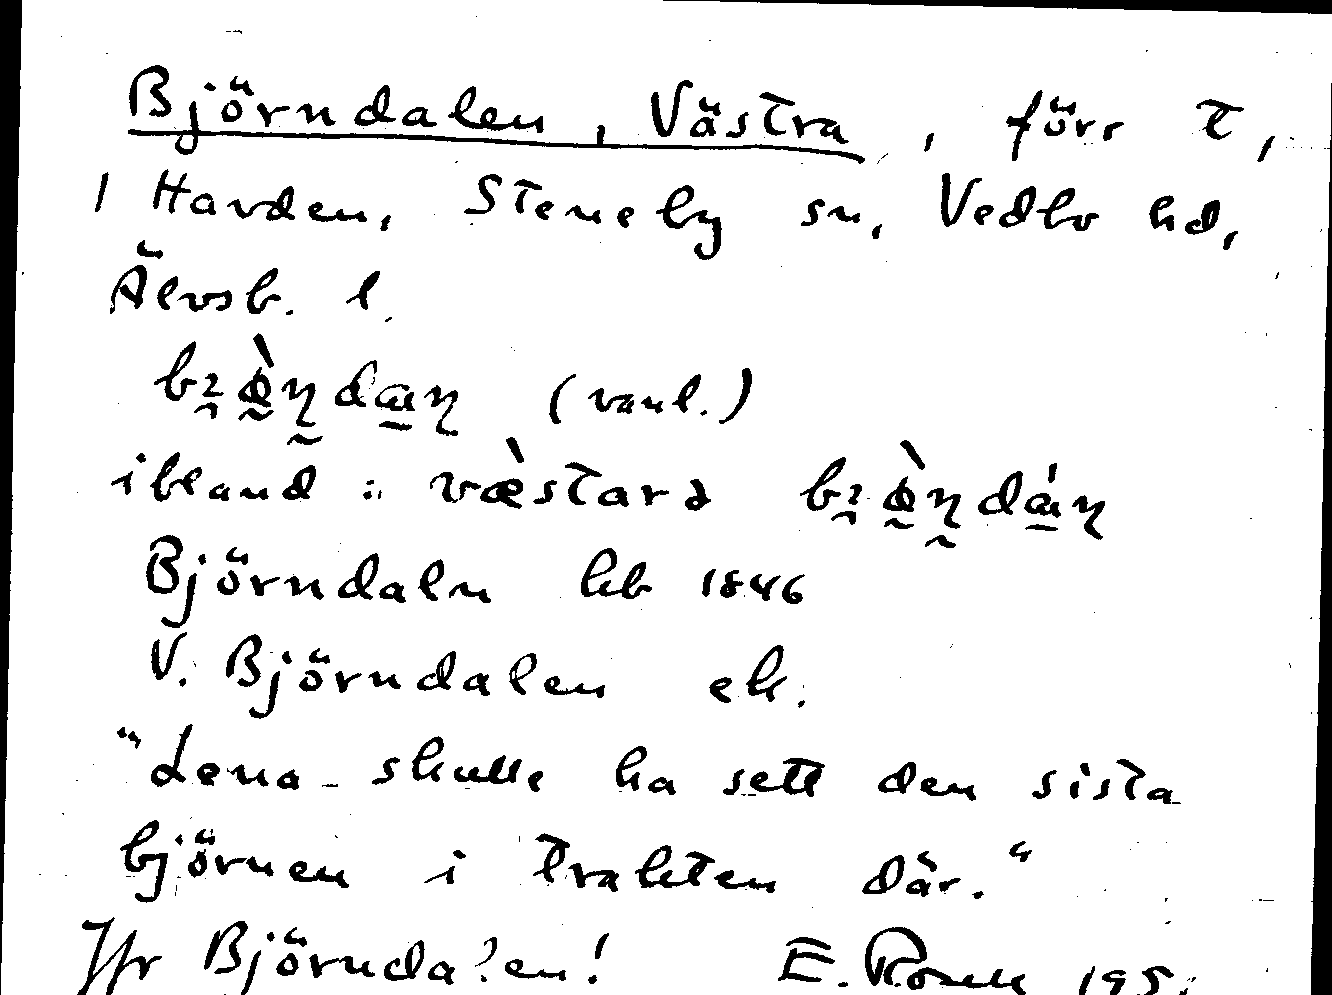 Björndalen, Västra, förr t,
1 Havden, Steneby sn, Vedbo hd,
Älvsb. l.
(vanl.)
ibland:
Björndaln hb 1846
V. Björndalen ek.
"Lena skulle ha sett den sista
björnen i trakten där."
Jfr Björndalen! E.